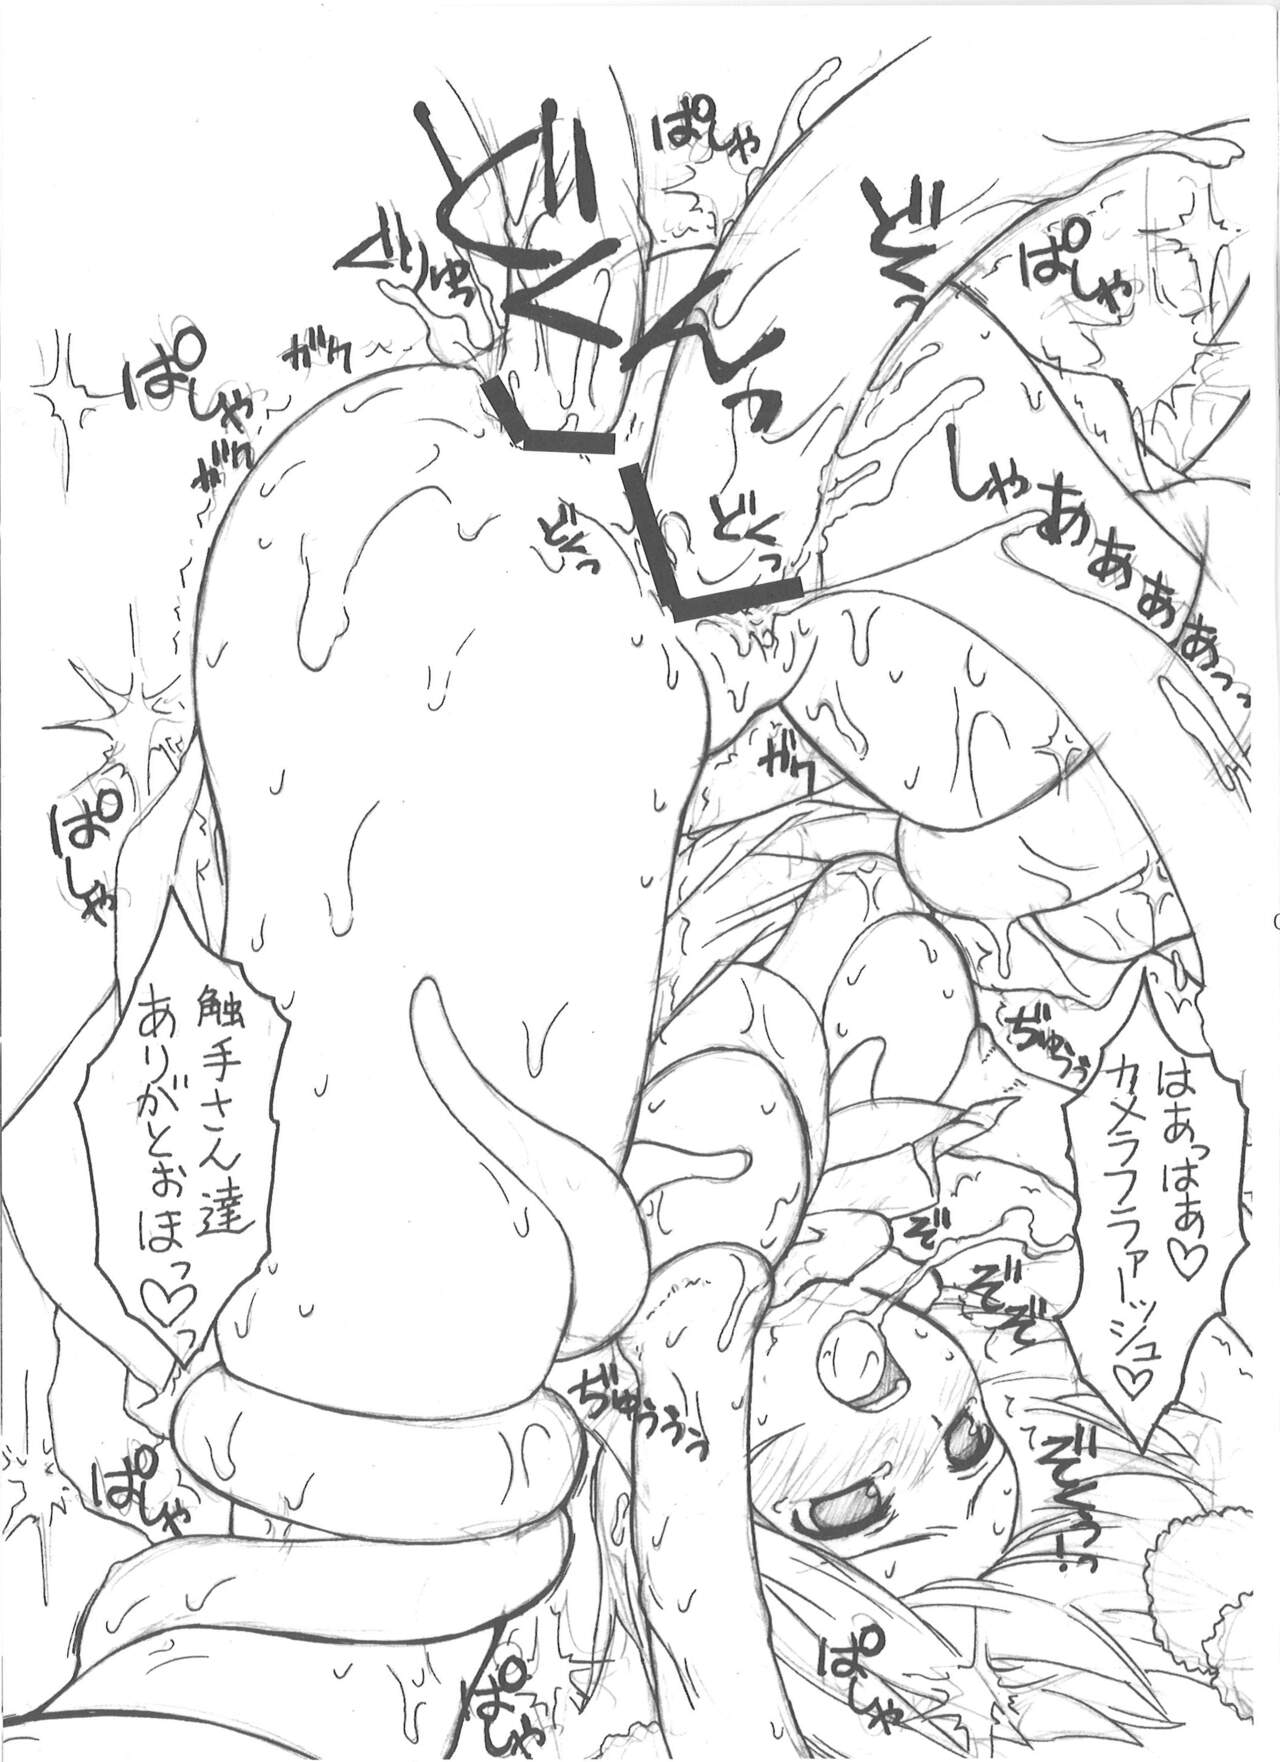 ぱしゃ
どくんっ
どくっ
ぱしゃ
ぐりゅっ
ガク
ぱしゃ
ガク
しゃあああああっっ
どくっ
どくっ
ガク
ぱしゃ
はあっはあ♡
カメラフラァーッシュ♡
ぢゅうぅ
触手さん達
ありがとおほっ♡っ
ぞ
ぞぞ
ぞ
ぢゅううぅぅ
ぞくっっ!
ぱしゃ
ぱしゃ
ぱしゃ